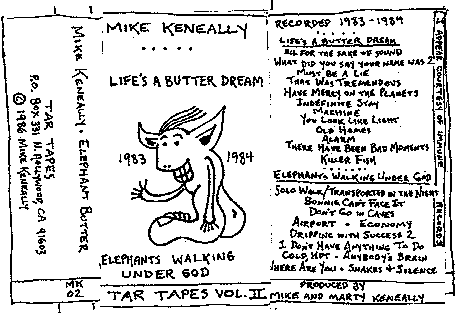 MIKE KENEALLY • ELEPHANT BUTTER
TAR TAPES
P.O. BOX 331 N. HOLLYWOOD, CA 91603
© 1986 MIKE KENEALLY
MK
02
MIKE KENEALLY
.....
LIFE'S A BUTTER DREAM
1983 1984
ELEPHANTS WALKING
UNDER GOD
TAR TAPES VOL. II
RECORDED 1983-1984
.....
LIFE'S A BUTTER DREAM
ALL FOR THE SAKE OF SOUND
WHAT DID YOU SAY YOUR NAME WAS?
MUST BE A LIE
THAT WAS TREMENDOUS
HAVE MERCY ON THE PLANETS
INDEFINITE STAY
MACHINE
YOU LOOK LIKE LIGHT
OLD HOMES
ALARM
THERE HAVE BEEN BAD MOMENTS
KILLER FISH
.....
ELEPHANTS WALKING UNDER GOD
SOLO WALK/TRANSPORTED IN THE NIGHT
BONNIE CAN'T FACE IT
DON'T GO IN CAVES
AIRPORT • ECONOMY
DRIPPING WITH SUCCESS 2
I DON'T HAVE ANYTHING TO DO
COLD, HOT • ANYBODY'S BRAIN
WHERE ARE YOU • SNAKES & SILENCE
PRODUCED BY
MIKE AND MARTY KENEALLY
I APPEAR COURTESY OF IMMUNE RECORDS